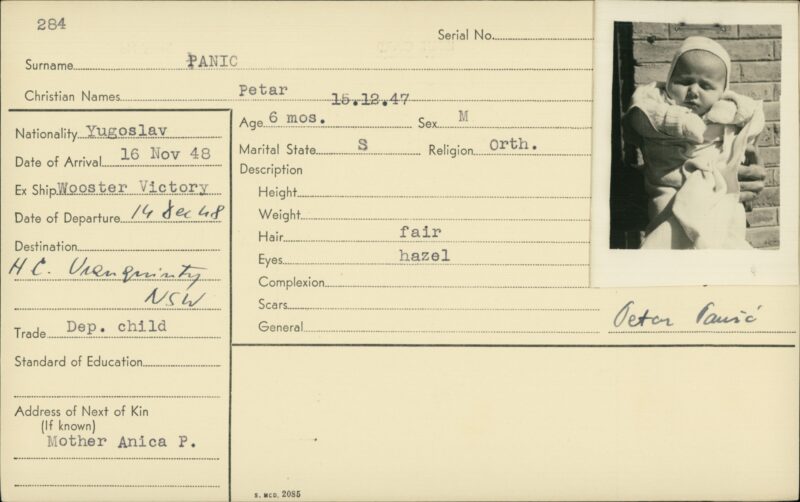 284
Serial No.
Surname PANIC
Christian Names Petar
15.12.47
Nationality Yugoslav
Date of Arrival 16 Nov 48
Ex Ship Wooster Victory
Date of Departure 14 Dec 48
Destination
H C. Uranquinty
NSW
Trade Dep. child
Standard of Education
Address of Next of Kin
(If known)
Mother Anica P.
Age 6 mos. Sex M
Marital State S Religion Orth.
Description
Height
Weight
Hair fair
Eyes hazel
Complexion
Scars
General
Petar Panić
S. MCD. 2085